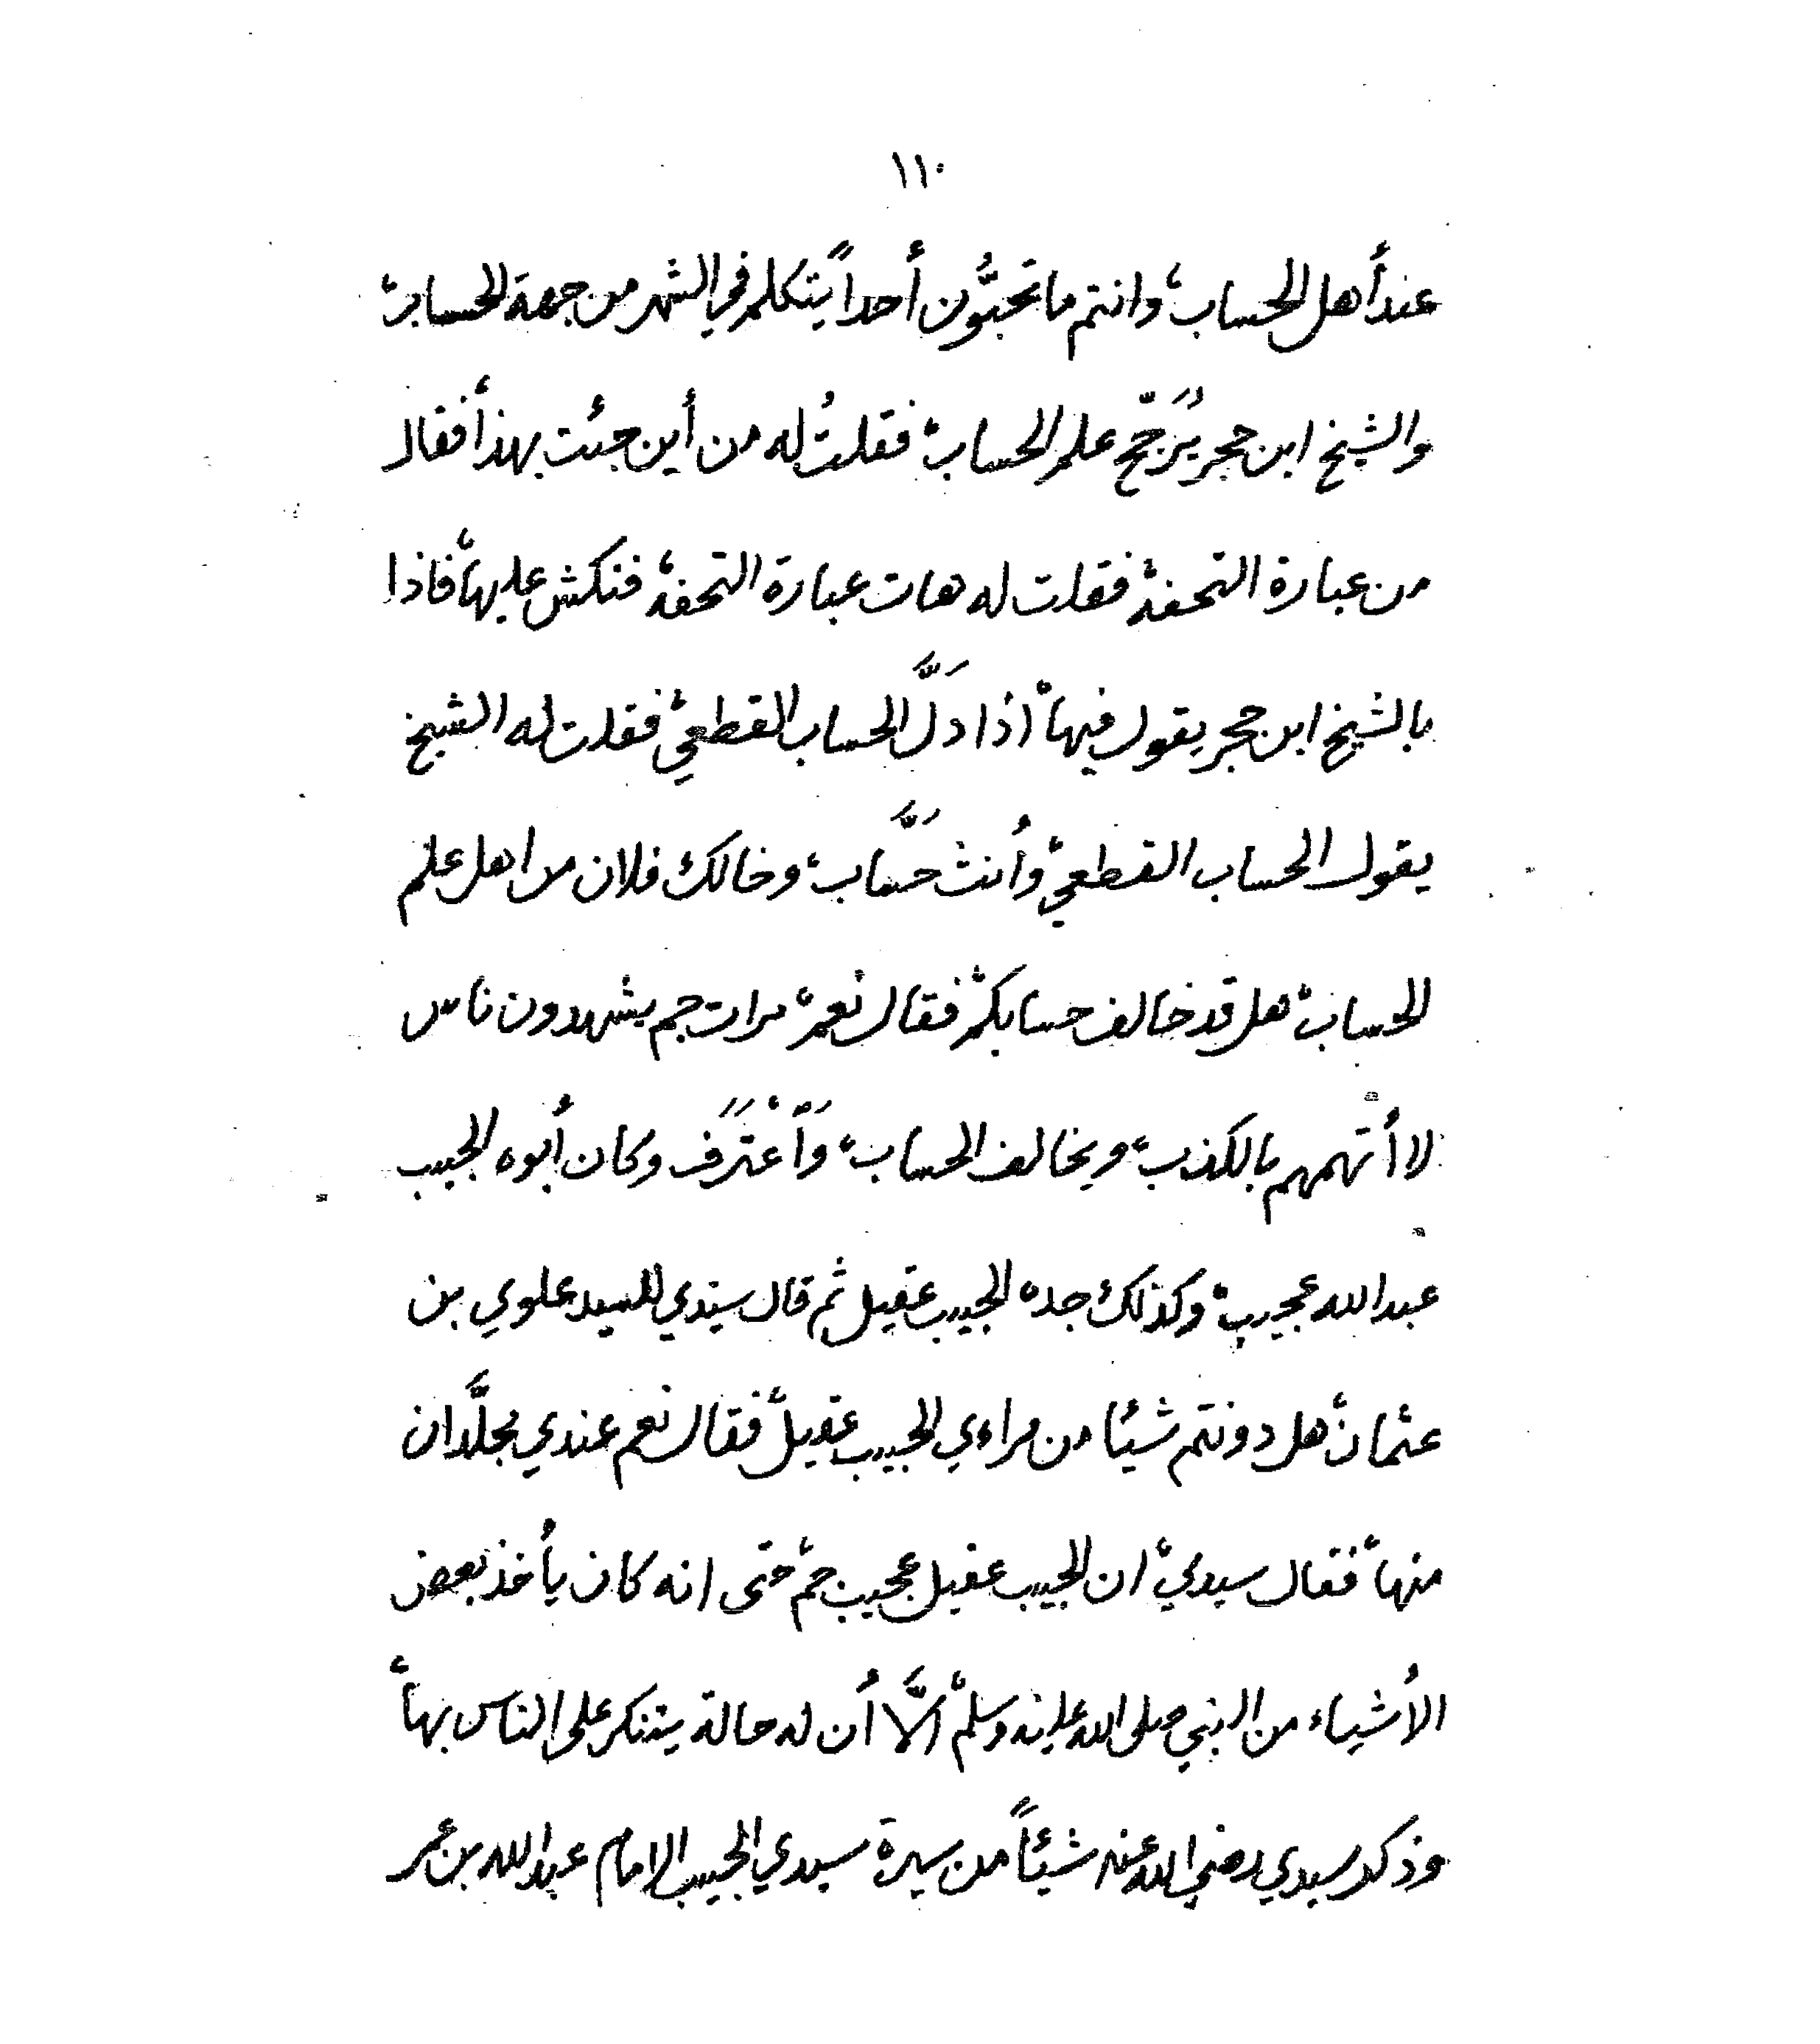 ١١٠
عند أهل الحساب، وانتم ما تحبُّون أحداً يتكلم في الشهر من جهة الحساب،
والشيخ ابن حجر يُرَجِّح علم الحساب، فقلتُ له من أين جئت بهذا، فقال
من عبارة التحفة، فقلت له هات عبارة التحفة، فنكش عليها، فاذا
بالشيخ ابن حجر يقول فيها، اذا دَلَّ الحساب القطعي، فقلت له الشيخ
يقول الحساب القطعي، وأنت حَسَّاب، وخالك فلان من اهل علم
الحساب، هل قد خالف حسابكم، فقال نعم، مرات جم يشهدون ناس
لا أتهمهم بالكذب، ويخالف الحساب، وَأعْتَرَف وكان أبوه الحبيب
عبدالله عجيب، وكذلك جده الحبيب عقيل ثم قال سيدي للسيد علوي بن
عثمان، هل دونتم شيئا من مراءي الحبيب عقيل، فقال نعم عندي مجلَّدان
منها، فقال سيدي، ان الحبيب عقيل عجيب جم، حتى انه كان يأخذ بعض
الأشياء من النبي صلى الله عليه وسلم، الَّا أن له حالة يتنكر على الناس بها،
وذكر سيدي رضي الله عنه شيئاً من سيرة سيدي الحبيب الامام عبدالله بن عمر